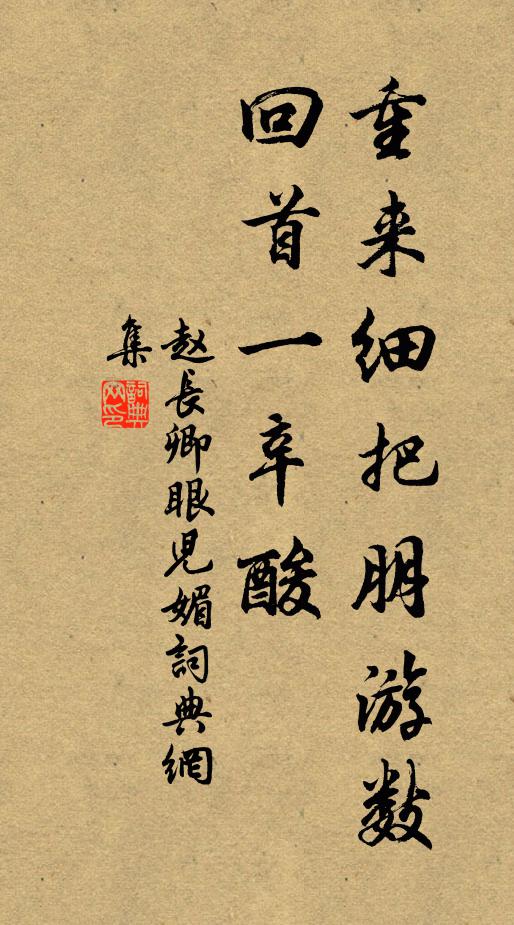 重来细把朋游数
回首一辛酸
赵長卿眼児媚詞典網
集
詞典
网印